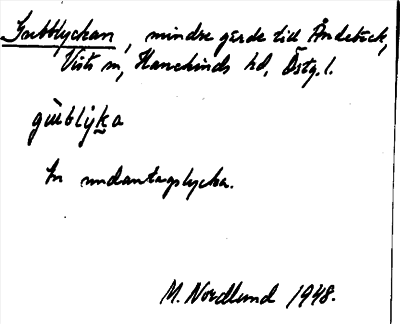 Gubblyckan, mindre gärde till Åndebäck,
Vists sn, Hanekinds hd, Östg. l.
gùblỳka
En undantagslycka.
M. Nordlund 1948.